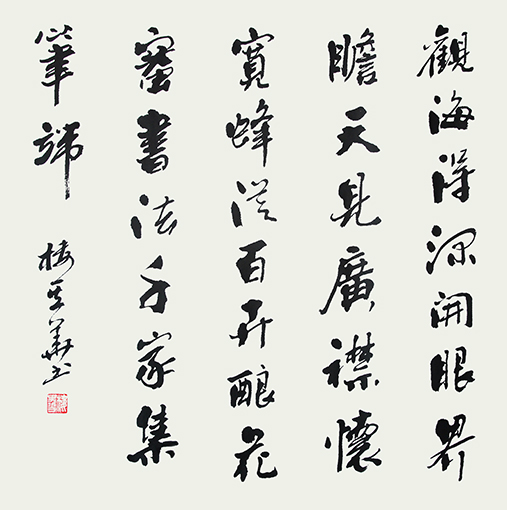 觀海得深開眼界
瞻天見廣襟懷
寬蜂從百卉釀花
蜜書法千家集
筆端
華书